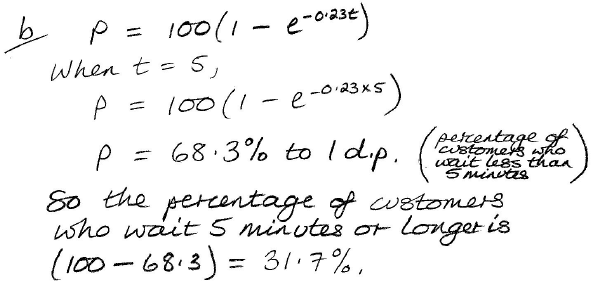 b P = 100(1 - e^-0.23t)
When t = 5,
P = 100(1 - e^-0.23×5)
P = 68.3% to 1 d.p. (percentage of customers who wait less than 5 minutes)
So the percentage of customers
who wait 5 minutes or longer is
(100 - 68.3) = 31.7%.